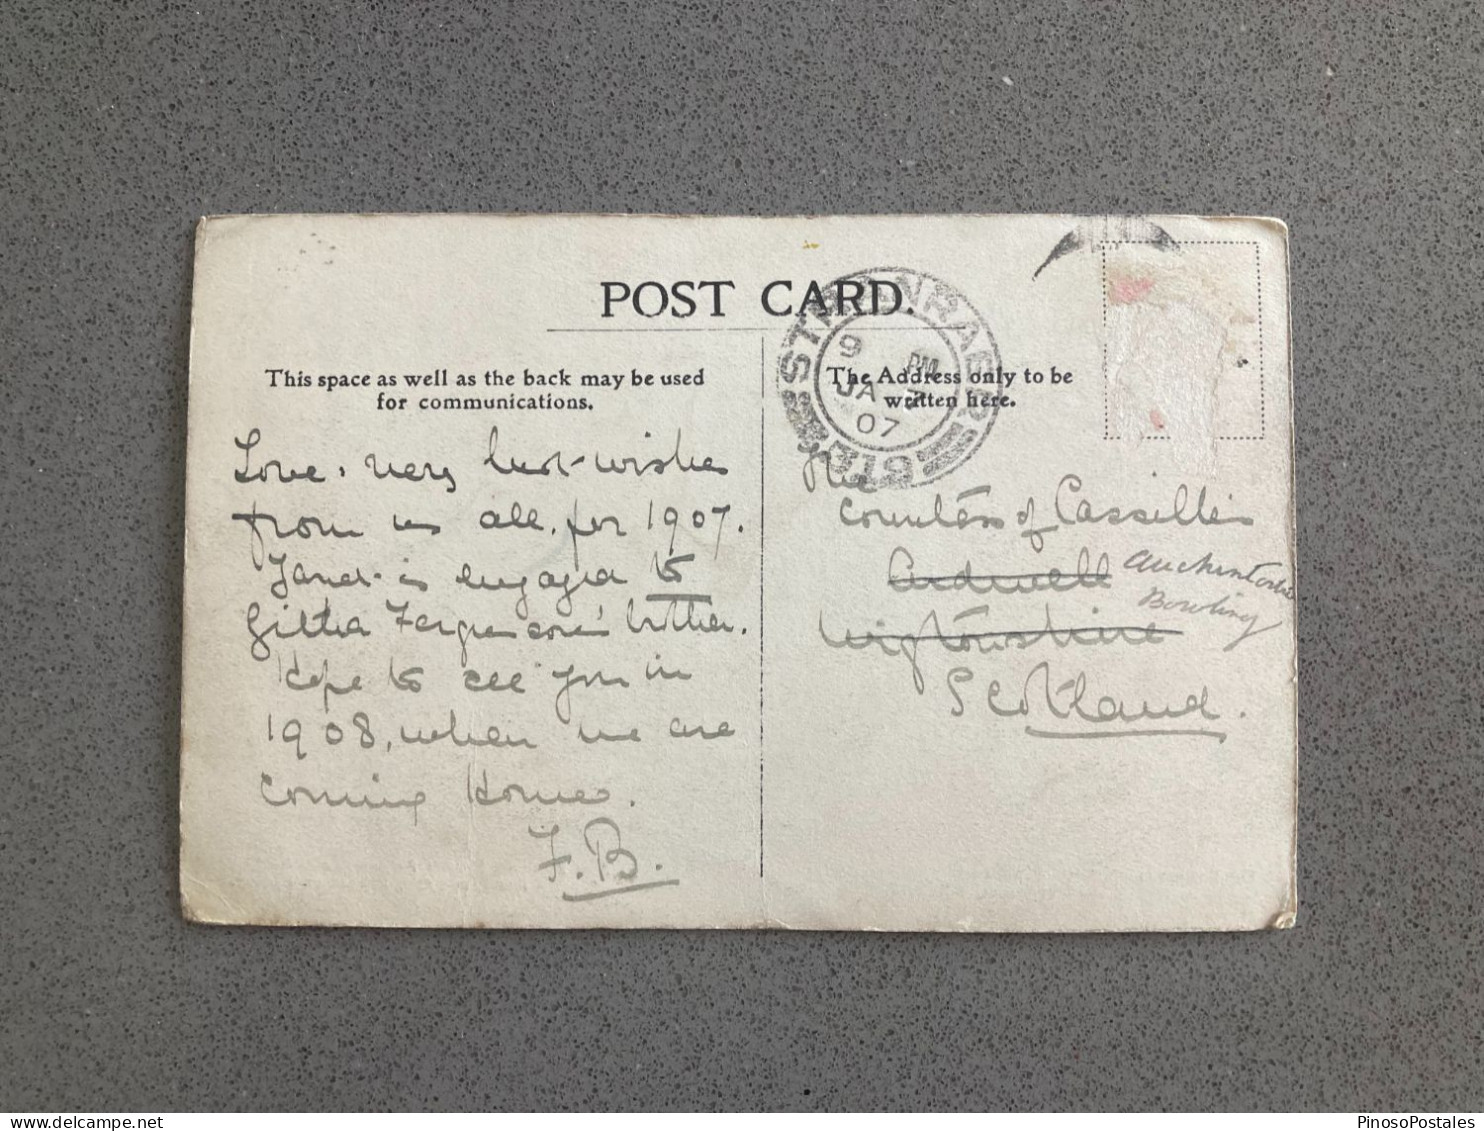 POST CARD.
STRANRAER
9 PM
JA
07
319
This space as well as the back may be used
for communications.
The Address only to be
written here.
Love & very best wishes
from us all, for 1907.
Janet is engaged to
Giltha Fergussone's brother.
Hope to see you in
1908, when we are
coming Home.
F.B.
The
Countess of Cassillis
Ardwell
Wigtonshire
Auchintoshan
Bowling
Scotland.
PinosoPostales